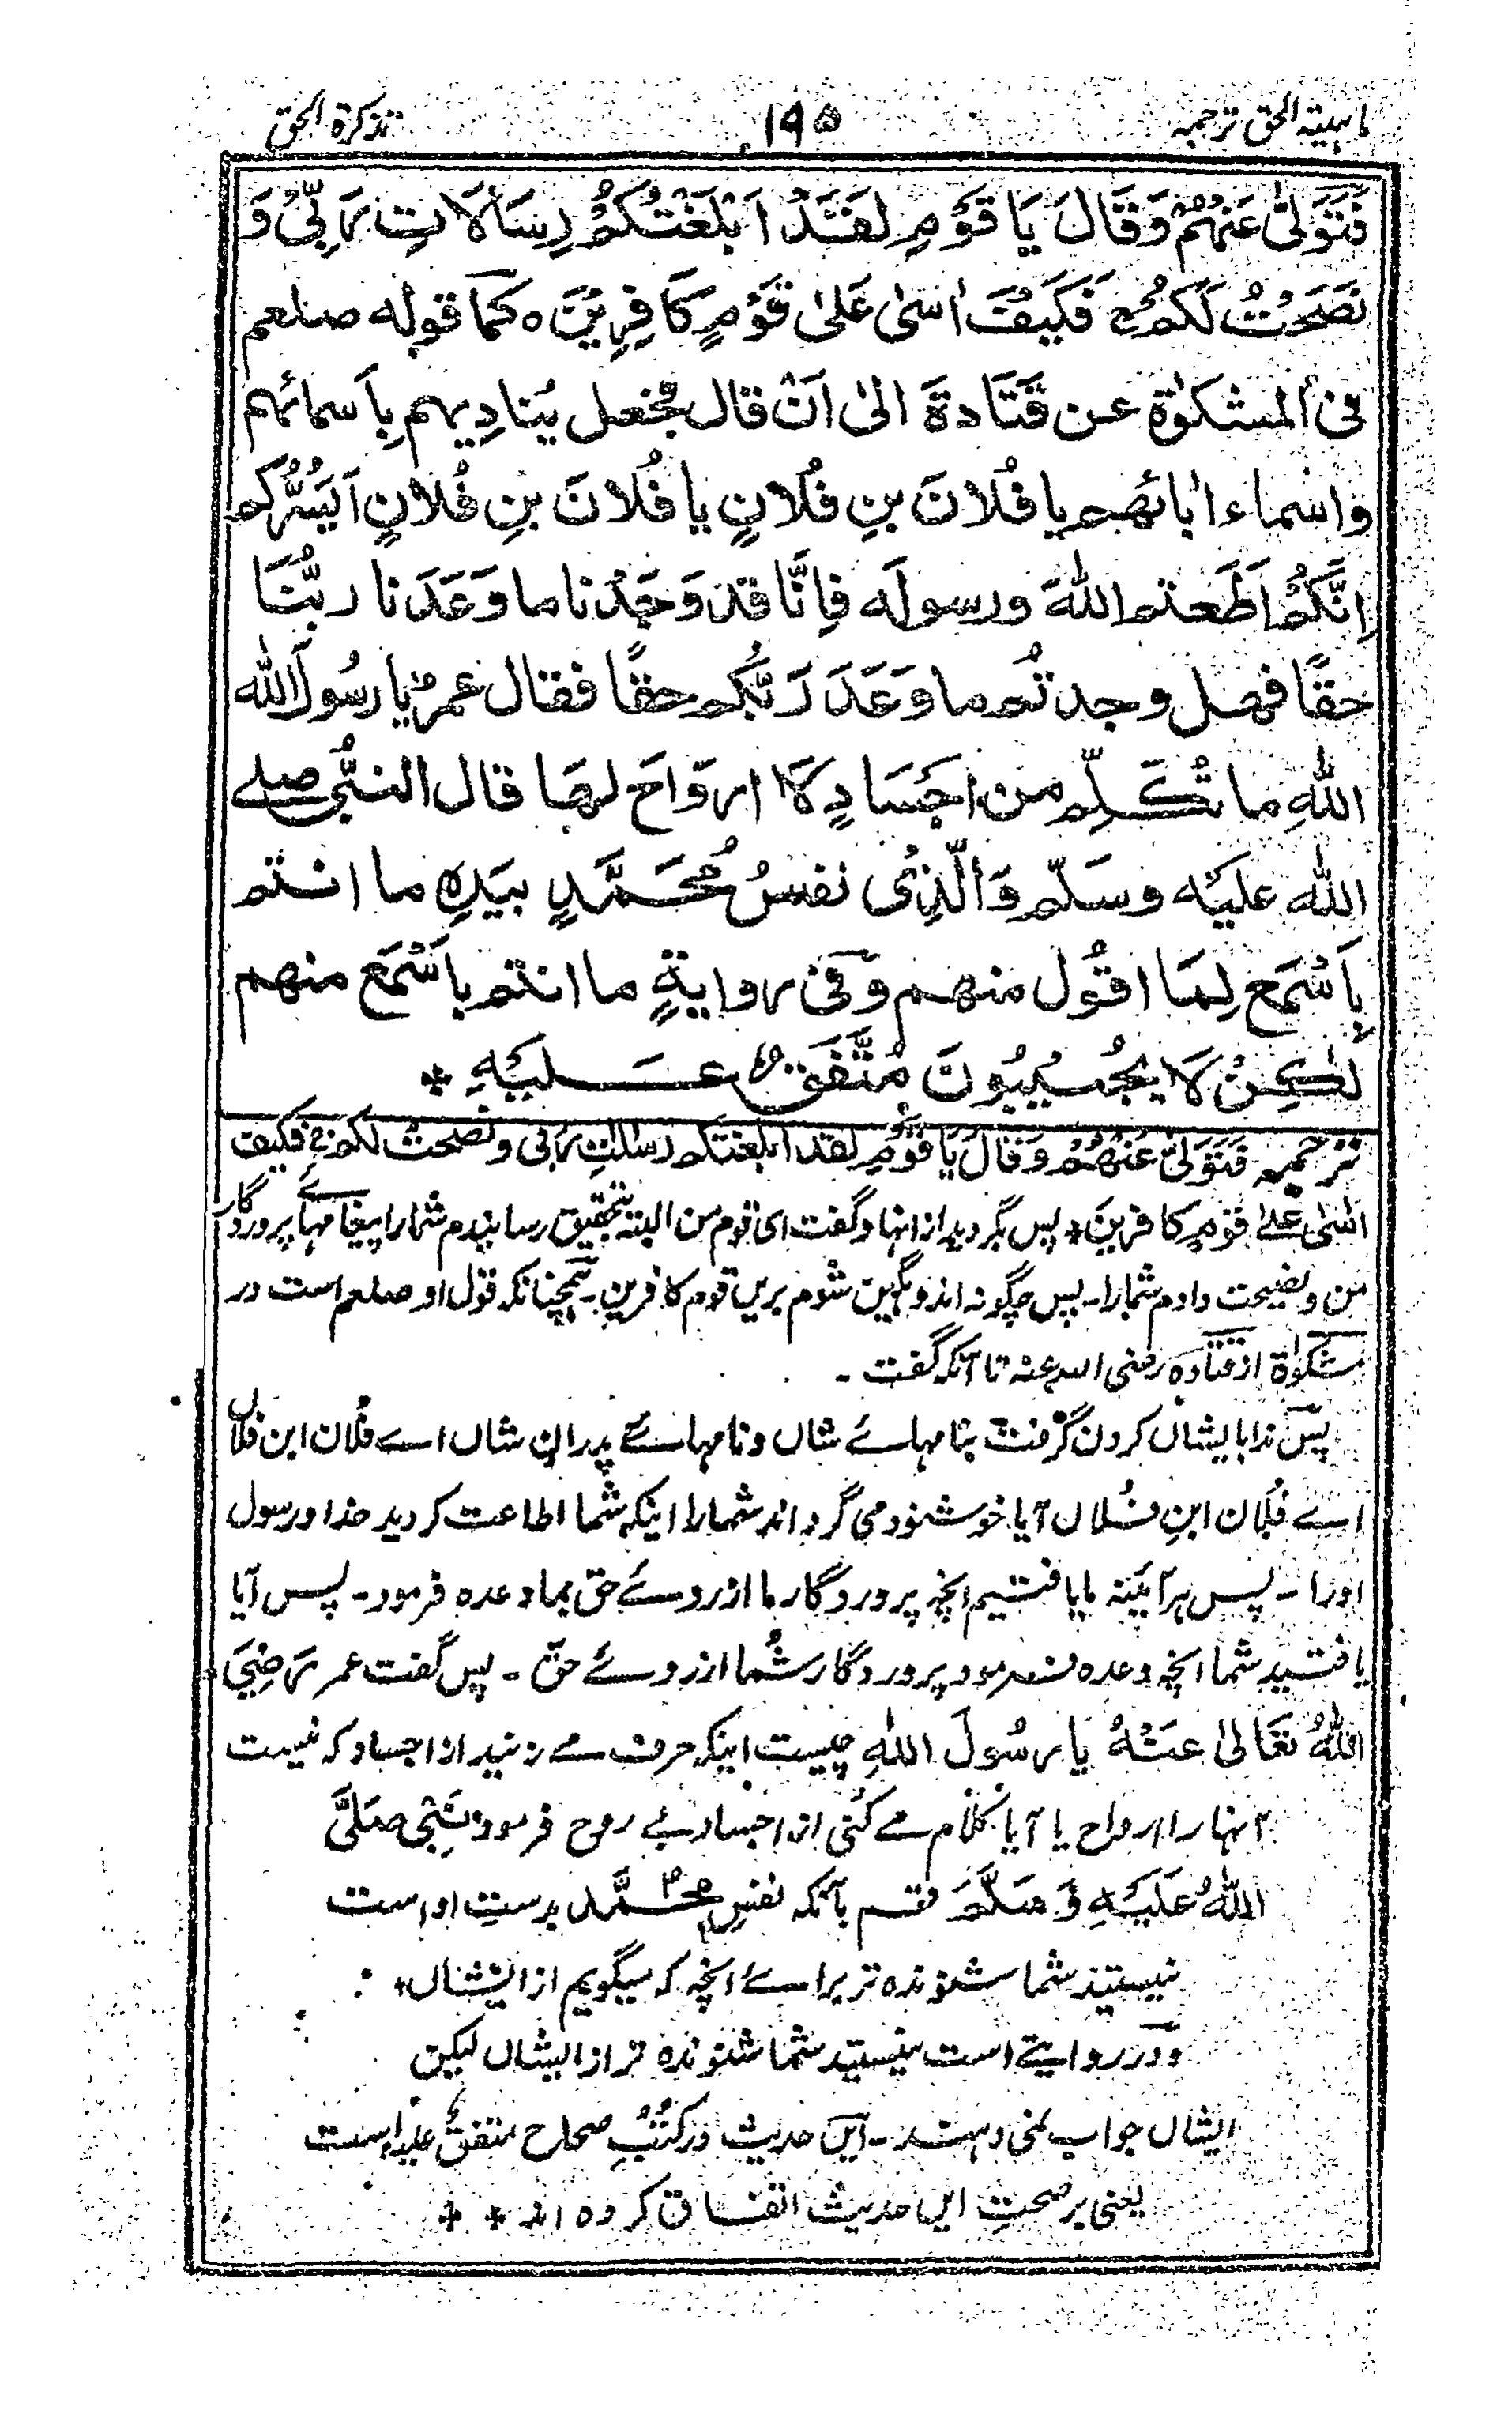 ماہیتہ الحق ترجمہ ۱۹۵ تذکرة الحق
فَتَوَلّٰى عَنْهُمْ وَقَالَ يَا قَوْمِ لَقَدْ اَبْلَغْتُكُمْ رِسَالَاتِ رَبِّىْ وَ
نَصَحْتُ لَكُمْ ج فَكَيْفَ اٰسٰى عَلىٰ قَوْمٍ كَافِرِيْنَ ہ كَمَا قوله صلعم
فی المشکوٰة عن قَتَادةَ الىٰ اَنْ قال فجعل يُنادِيهم بِاَسمائهم
واسْماء اٰبائهم يا فُلَانَ بنِ فُلَانٍ يا فُلَانَ بنِ فُلَانٍ اَيَسُرُّكُم
اِنَّكُمْ اَطَعتم اللهَ ورسولَه فاِنَّا قد وَجَدْنا ما وَعَدَنا ربُّنَا
حقًّا فهل وجدتُم ما وَعَدَ رَبُّكُم حقًّا فقال عمرؓ يا رسُولَ الله
اللهِ ما تُكَلِّم من اجَسَادٍ لَا ارْوَاحَ لهَا قال النبُّى صلے
الله عليْه وسَلّم وَالّذِىْ نفسُ مُحَمَّدٍ بيَدِهِ ما انتم
بِاَسْمَع لِمَا اقوُل منهم وَفى روايةٍ ما انتم باَسْمَع منهم
لٰكِنْ لَا يُجُيْبُوْنَ مُتَّفَقٌ عَلَيْهِ *
ترجمہ فَتَوَلىّٰ عَنْهُمْ وَقَالَ يَا قَوْمِ لقَد ابلغتكم رسٰلٰتِ رَبى ونصحتُ لكم ج فَكيف
اٰسٰى عَلےٰ قوْمٍ كافرينَ ٭ پس بگردید از انہا و گفت ای قوم من البتہ تحقیق رسانیدم شمارا پیغامہائے پروردگار
من ونصیحت دادم شمارا۔ پس چگونہ اندوہگین شوم برین قوم کافرین۔ ہمچنانکہ قول او صلعم است در
مشکوٰة از قتادہ رضی اللہ عنہ تا آنکہ گفت ۔
پس ندا بایشاں کردن گرفت بنامہائے شاں ونامہائے پدرانِ شاں اے فلان ابن فلاں
اے فلان ابن فلاں آیا خوشنود می گرداند شمارا اینکہ شما اطاعت کردید خدا ورسول
اورا ۔ پس ہرآئینہ مایافتیم انچہ پروردگار ما ازروئے حق بما وعدہ فرمود۔ پس آیا
یافتید شما انچہ وعدہ فرمود پروردگار شُما ازروئے حق ۔ پس گفت عمر رَضِیَ
اللهُ تعَالىٰ عنْهُ يا رسُولَ اللهِ چیست اینکہ حرف مے زنید از اجساد کہ نیست
آنہارا ارواح یا آیا کلام مے کنی از اجساد بے روح فرمود نبی صلَّى
اللهُ عَلَيْهِ وَ سَلَّمَ قسم بآنکہ نفسِ محمَّد بدستِ اوست
نیستید شما شنوندہ تر براے انچہ کہ میگویم از ایشاں ٭
ودر روایتے است نیستید شما شنوندہ تر از ایشاں لیکن
ایشاں جواب نمی دہند۔ این حدیث در کتُبِ صحاح متفق علیہ است
یعنی بر صحتِ ایں حدیث اتفاق کردہ اند * *